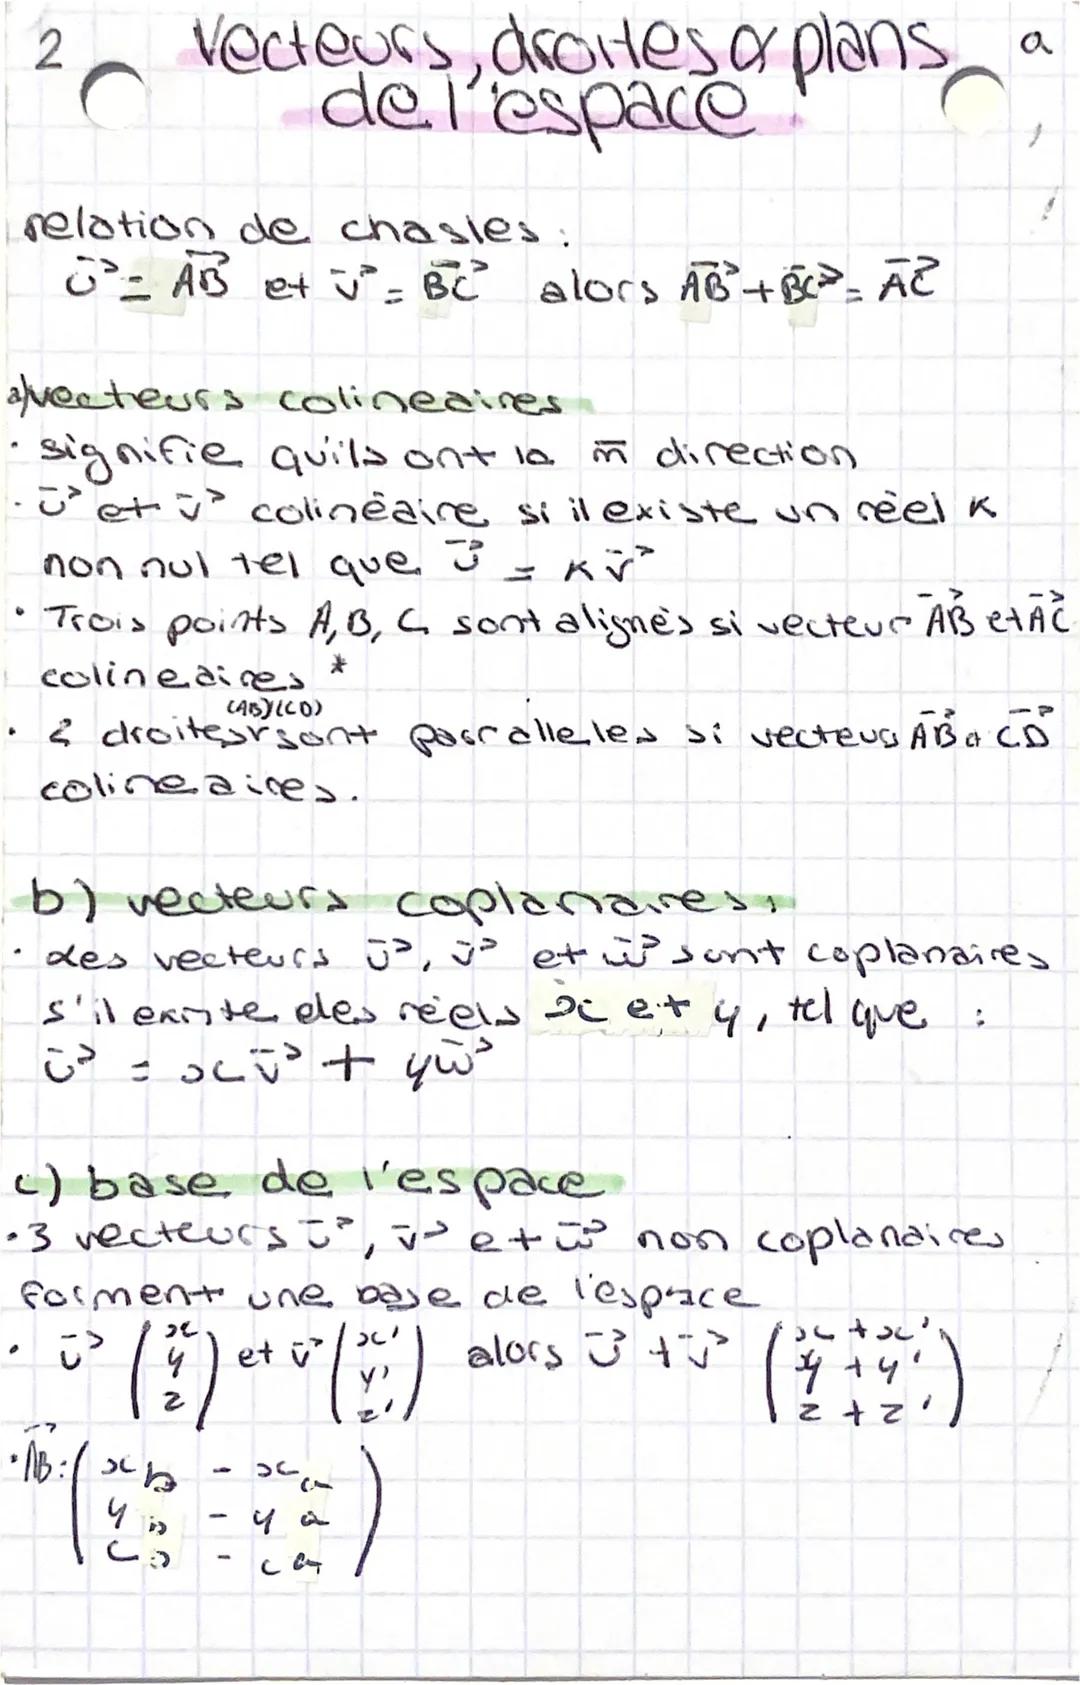 2 Vecteurs, droites & plans a
de l'espace.
relation de chasles :
u⃗ = AB⃗ et v⃗ = BC⃗ alors AB⃗ + BC⃗ = AC⃗
a) vecteurs colineaires
· signifie qu'ils ont la m̄ direction
· u⃗ et v⃗ colinéaire si il existe un réel K
non nul tel que u⃗ = K v⃗
· Trois points A, B, C sont alignés si vecteur AB⃗ et AC⃗
colineaires *
(AB) (CD)
· 2 droites sont parralleles si vecteus AB⃗ & CD⃗
colineaires.
b) vecteurs coplanaires :
· Les vecteurs u⃗, v⃗ et w⃗ sont coplanaires
s'il existe des réels x et y, tel que :
u⃗ = x v⃗ + y w⃗
c) base de l'espace
· 3 vecteurs u⃗, v⃗ et w⃗ non coplanaires
forment une base de l'espace
· u⃗ (x y z) et v⃗ (x' y' z') alors u⃗ + v⃗ (x + x' y + y' z + z')
· AB⃗ : (x b - x a
y b - y a
c b - c a)